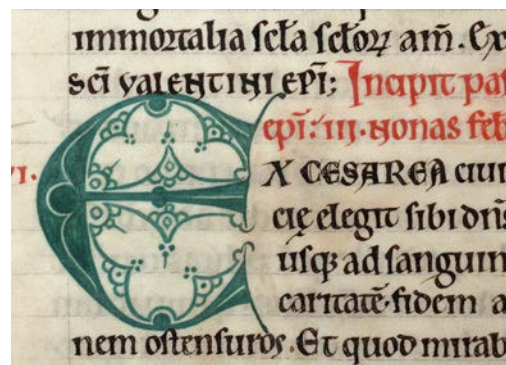 immortalia scła sctoꝝ am̄. Ex
sc̄i VALENTINI EPĪ; Incipit pas
epī. iii. Nonas feb
vi. EX CESAREA ciui
cię elegit sibi dn̄s
usqꝫ ad sanguin
caritatē. fidem a
nem ostensuros. Et quod mirab